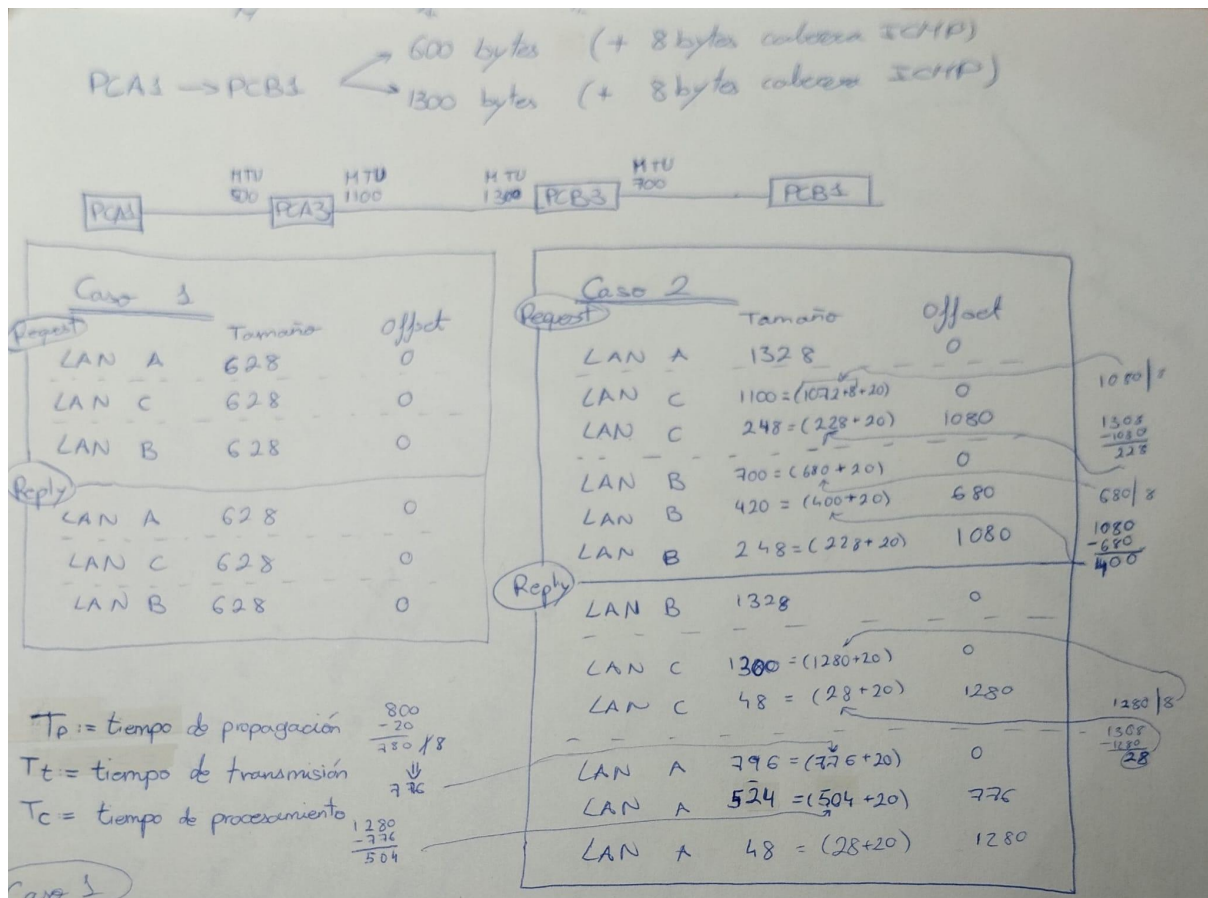 600 bytes (+ 8 bytes cabecera ICMP)
PCA1 → PCB1
1300 bytes (+ 8 bytes cabecera ICMP)
MTU 800
MTU 1100
MTU 1300
MTU 700
PCA1
PCA3
PCB3
PCB1
Caso 1
Request
Tamaño Offset
LAN A 628 0
LAN C 628 0
LAN B 628 0
Reply
LAN A 628 0
LAN C 628 0
LAN B 628 0
Caso 2
Request
Tamaño Offset
LAN A 1328 0
LAN C 1100 = (1072+8+20) 0
LAN C 248 = (228+20) 1080
LAN B 700 = (680+20) 0
LAN B 420 = (400+20) 680
LAN B 248 = (228+20) 1080
Reply
LAN B 1328 0
LAN C 1300 = (1280+20) 0
LAN C 48 = (28+20) 1280
LAN A 796 = (776+20) 0
LAN A 524 = (504+20) 776
LAN A 48 = (28+20) 1280
1080/8
1308
-1080
228
680/8
1080
-680
400
1280/8
1308
-1280
28
Tp := tiempo de propagación
Tt := tiempo de transmisión
Tc := tiempo de procesamiento
800
-20
780 /8
⇓
776
1280
-776
504
Caso 1